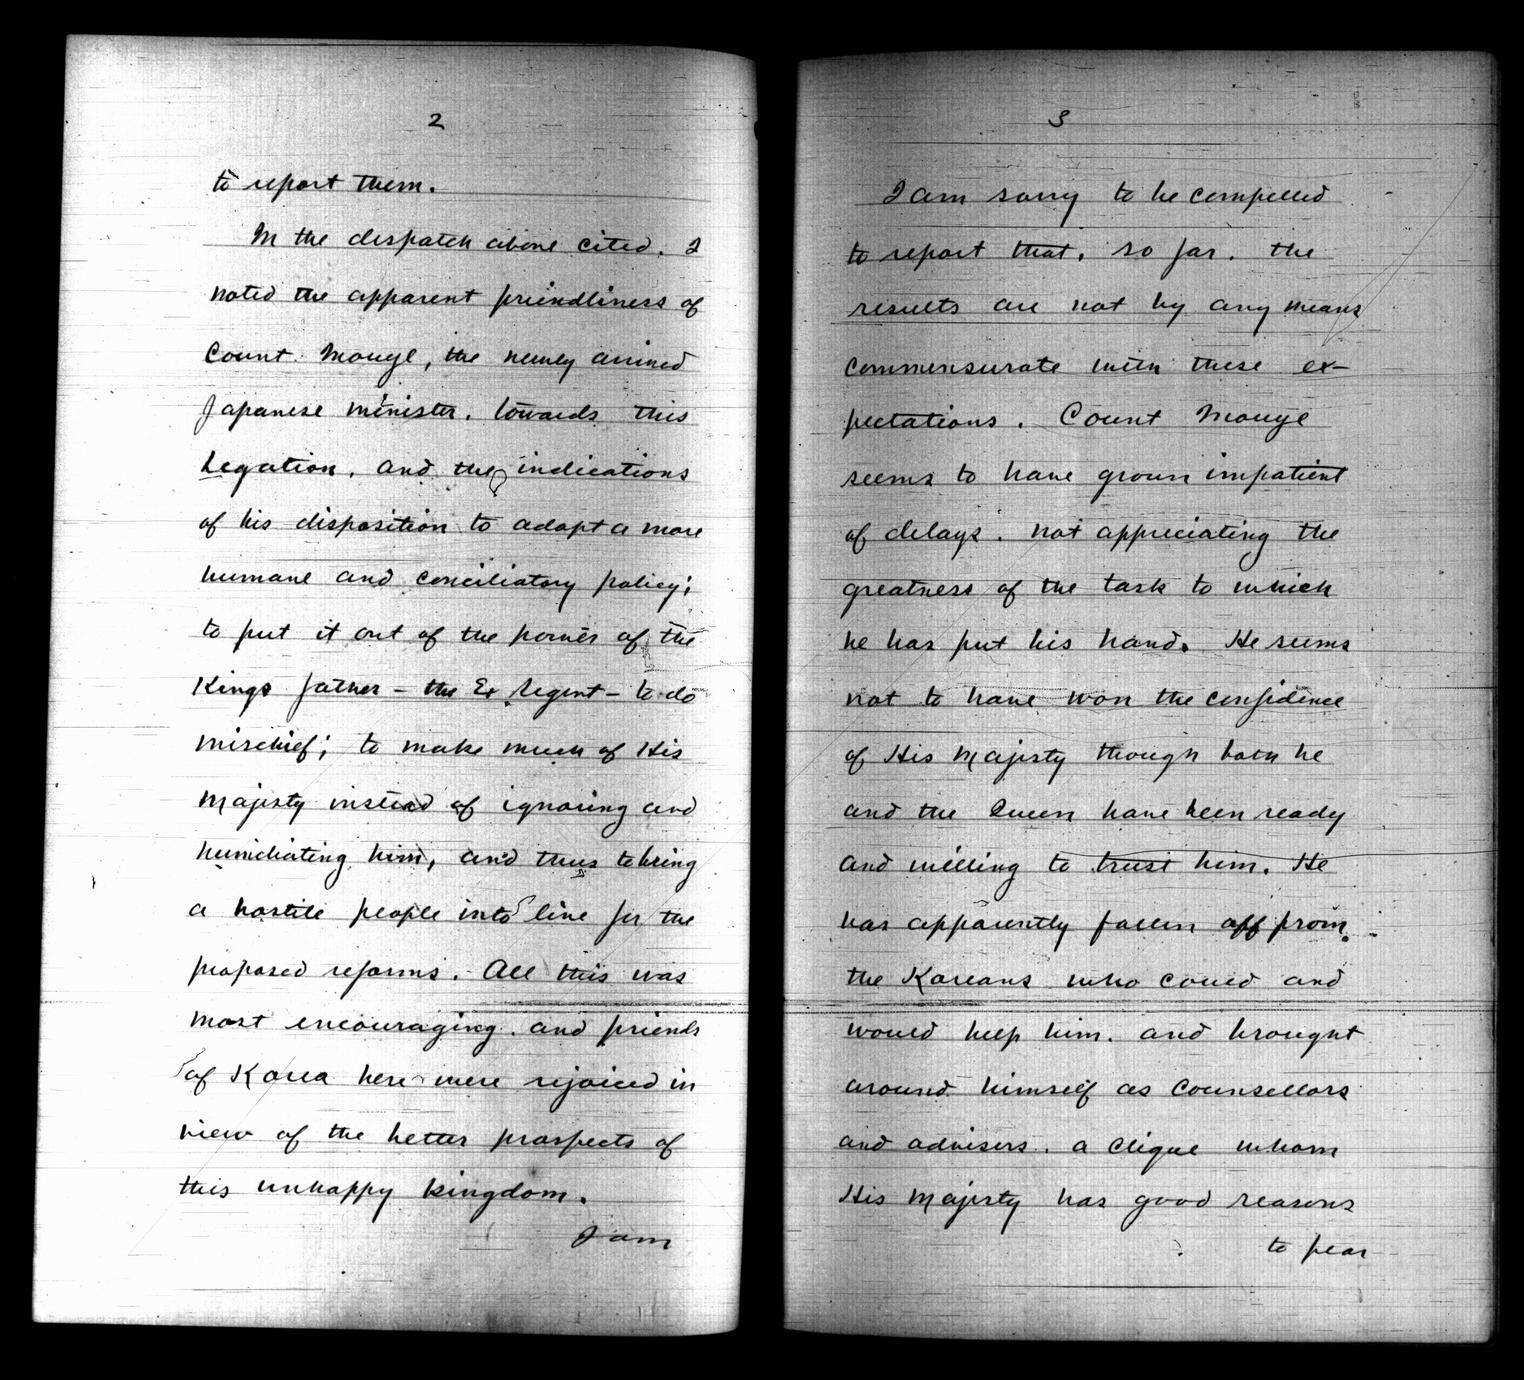 2
to report them.
In the dispatch above cited, I
noted the apparent friendliness of
Count Mouye, the newly arrived
Japanese minister, towards this
Legation, and the indications
of his disposition to adopt a more
humane and conciliatory policy;
to put it out of the power of the
Kings father - the Ex Regent - to do
mischief; to make much of His
Majesty instead of ignoring and
humiliating him, and thus to bring
a hostile people into line for the
proposed reforms. All this was
most encouraging, and friends
of Korea here were rejoiced in
view of the better prospects of
this unhappy kingdom.
I am
3
I am sorry to be compelled
to report that, so far, the
results are not by any means
commensurate with these ex-
pectations. Count Mouye
seems to have grown impatient
of delays, not appreciating the
greatness of the task to which
he has put his hand. He seems
not to have won the confidence
of His Majesty though both he
and the Queen have been ready
and willing to trust him. He
has apparently fallen off from
the Koreans who could and
would help him, and brought
around himself as Counsellors
and advisers, a clique whom
His Majesty has good reasons
to fear